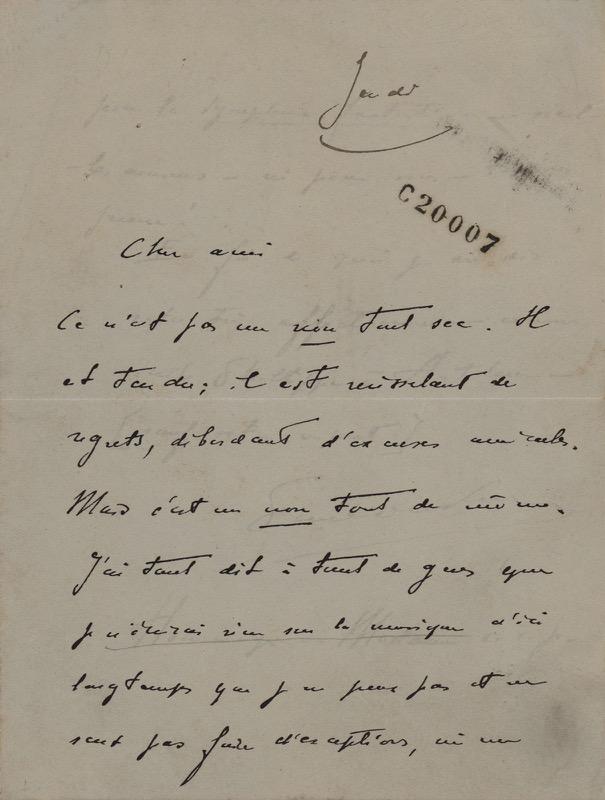 Jeudi
C20007
Cher ami
Ce n'est pas un non tout sec. Il
est tendre ; il est ruisselant de
regrets, débordant d'excuses amicales.
Mais c'est un non tout de même.
J'ai tant dit à tant de gens que
je n'écrirai rien sur la musique d'ici
longtemps que je ne peux pas et ne
sais pas faire d'exceptions, ni